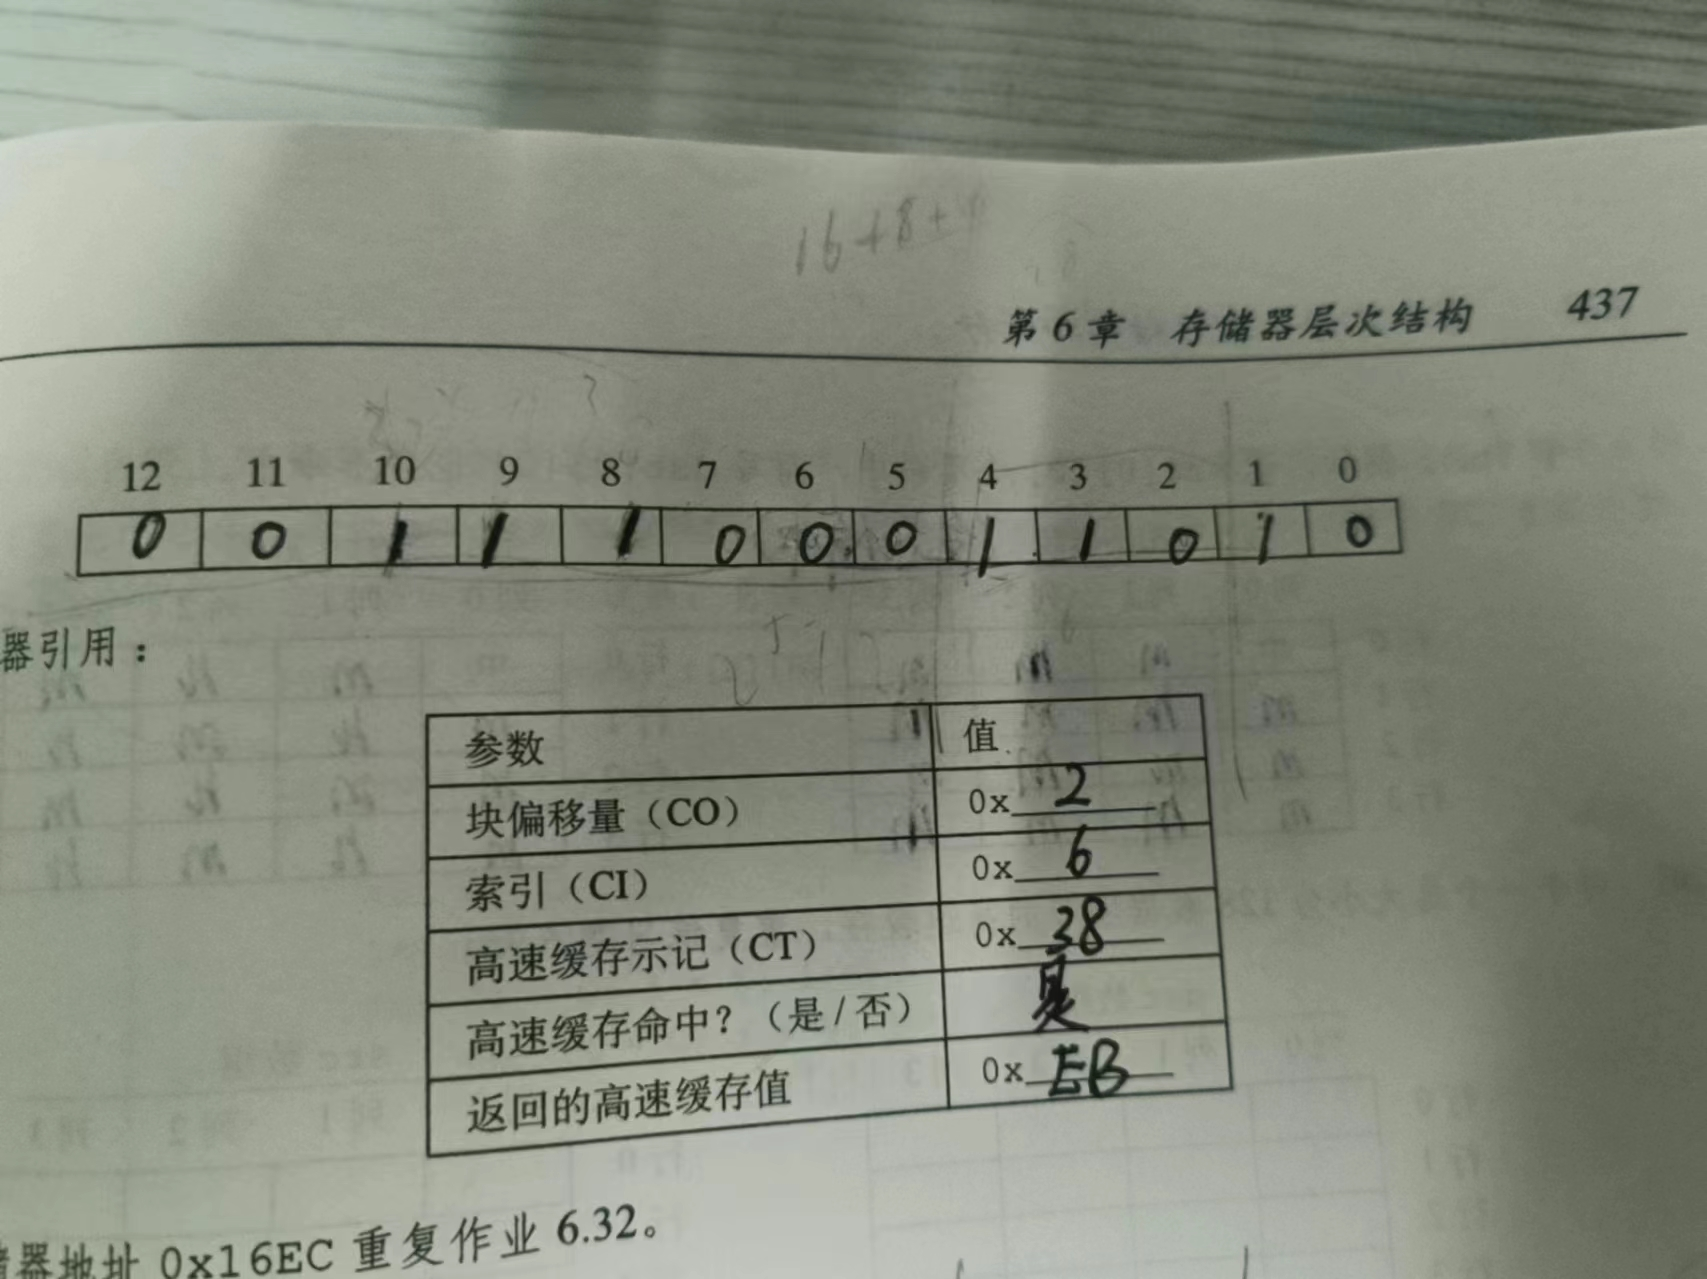 16+8+4
第6章 存储器层次结构 437
12 11 10 9 8 7 6 5 4 3 2 1 0
0 0 1 1 1 0 0 0 1 1 0 1 0
器引用：
参数 值
块偏移量（CO） 0x 2
索引（CI） 0x 6
高速缓存示记（CT） 0x 38
高速缓存命中？（是/否） 是
返回的高速缓存值 0x EB
储器地址 0x16EC 重复作业 6.32。